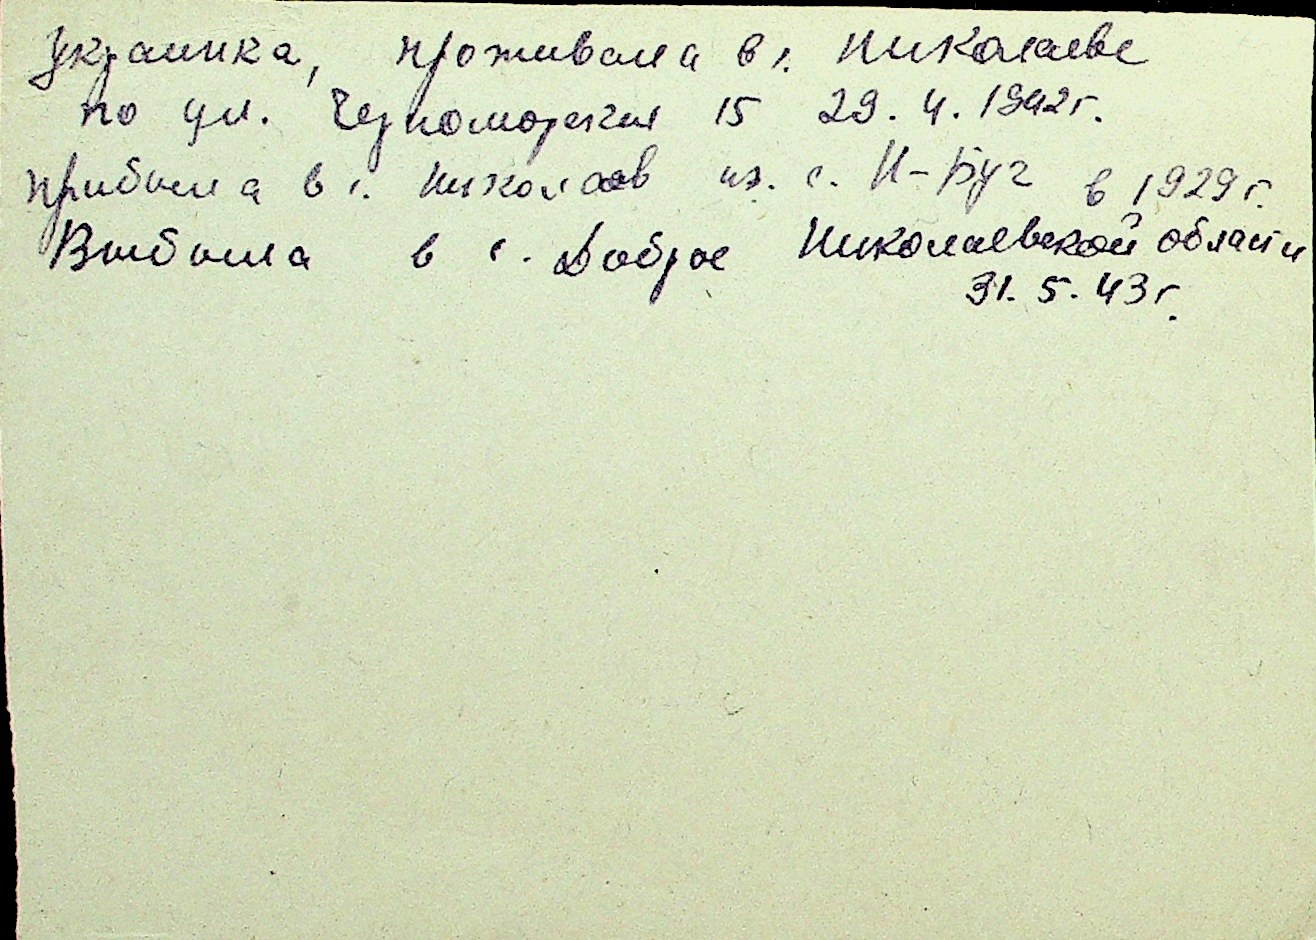 Украинка, проживала в г. Николаеве
по ул. Черноморская 15 29. 4. 1942 г.
прибыла в г. Николаев из. с. Н-Буг в 1929 г.
Выбыла в с. Доброе Николаевской области
31. 5. 43 г.